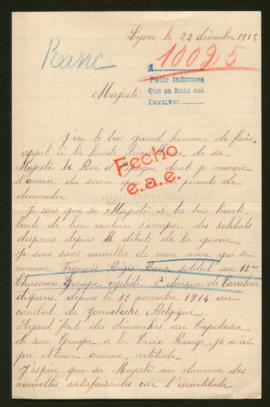 Lyon le 22 décembre 1915
Ranc
10095
Pedir informes
Que se hada asi
Devolver
Majesté
J'ai le très grand honneur de faire
appel à la haute de sa
Majesté le Roi d'Espagne, dont je
d'avance du que je me permets de
demander.
Je sais que sa Majesté a la très haute
bonté de bien vouloir s'occuper des soldats
disparus depuis le début de la guerre.
Fecho
e.a.e.
Je suis sans nouvelles de mon mari que se
nomme Ranc soldat au 13e
chasseurs Groupe cycliste division de Cavalerie
disparu depuis le 13 novembre 1914 au
combat de Zonnebeke Belgique.
Ayant fait des démarches au Capitaine
de son Groupe, à la Croix Rouge, je n'ai
pu obtenir aucune certitude.
J'espère que sa Majesté me donnera des
nouvelles satisfaisantes car l'incertitude